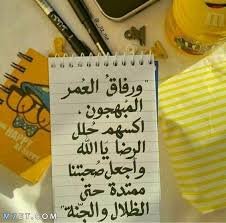 "ورفاقُ العُمر
المُبهجون،
اكسهم حُلل
الرضا يا الله
وأجعل صُحبتنا
ممتدة حتىٰ
الظلال والجنّة"
HAPPY
MZET.COM